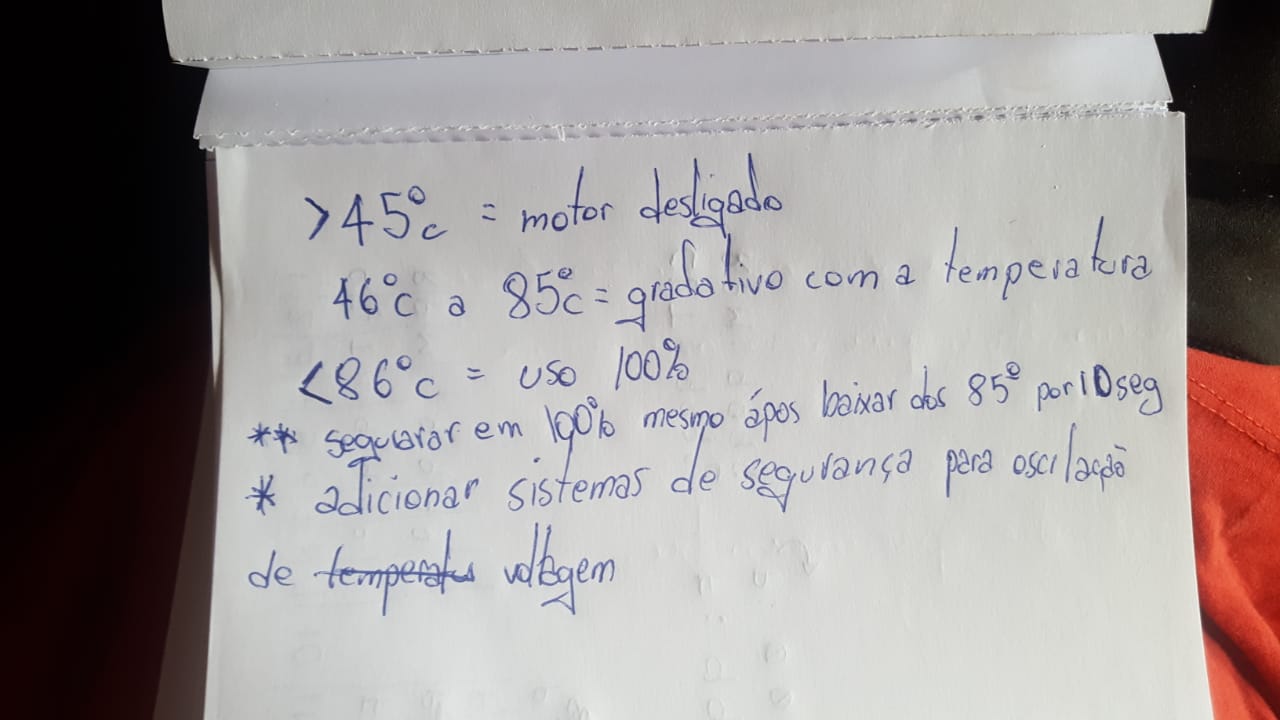 >45°c = motor desligado
46°c a 85°c = gradativo com a temperatura
<86°c = uso 100%
** segurar em 100% mesmo ápos baixar dos 85° por 10 seg
* adicionar sistemas de segurança para oscilação
de temperatu voltagem